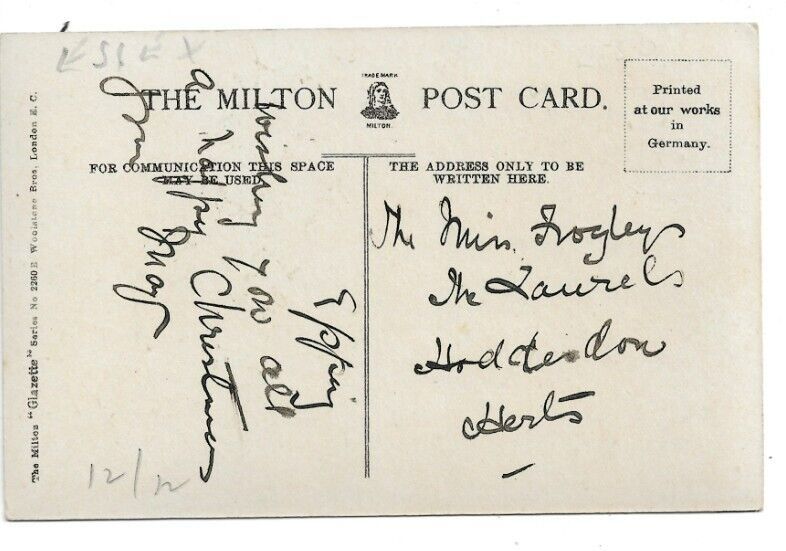 ESSEX
THE MILTON
TRADE MARK
MILTON.
POST CARD.
Printed
at our works
in
Germany.
FOR COMMUNICATION THIS SPACE
MAY BE USED
THE ADDRESS ONLY TO BE
WRITTEN HERE.
Epping
Wishing you all
a happy Christmas
from May
The Miss Frogleys
The Laurels
Hoddesdon
Herts
12/12
The Milton "Glazette" Series No 2260E Woolstone Bros. London E. C.